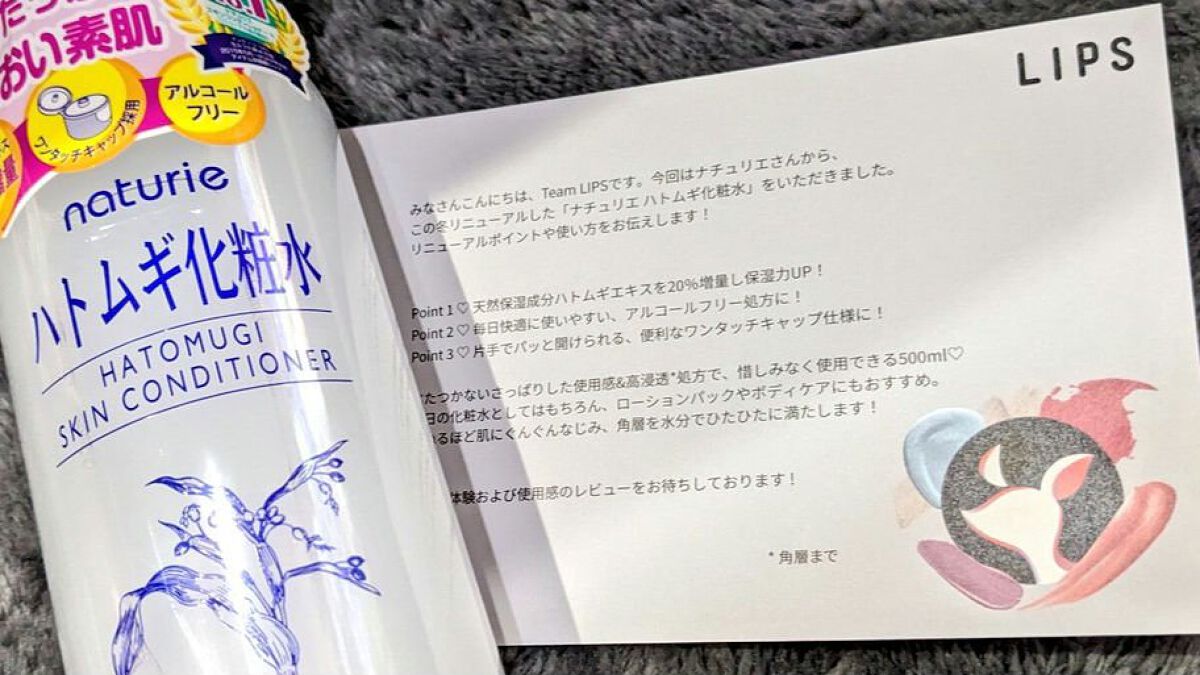 おい素肌
ワンタッチキャップ採用
アルコール
フリー
増量
naturie
ハトムギ化粧水
HATOMUGI
SKIN CONDITIONER
LIPS
みなさんこんにちは、Team LIPSです。今回はナチュリエさんから、
この冬リニューアルした「ナチュリエ ハトムギ化粧水」をいただきました。
リニューアルポイントや使い方をお伝えします！
Point 1♡ 天然保湿成分ハトムギエキスを20%増量し保湿力UP！
Point 2♡ 毎日快適に使いやすい、アルコールフリー処方に！
Point 3♡ 片手でパッと開けられる、便利なワンタッチキャップ仕様に！
たつかないさっぱりした使用感&高浸透*処方で、惜しみなく使用できる500ml♡
日の化粧水としてはもちろん、ローションパックやボディケアにもおすすめ。
るほど肌にぐんぐんなじみ、角層を水分でひたひたに満たします！
体験および使用感のレビューをお待ちしております！
* 角層まで